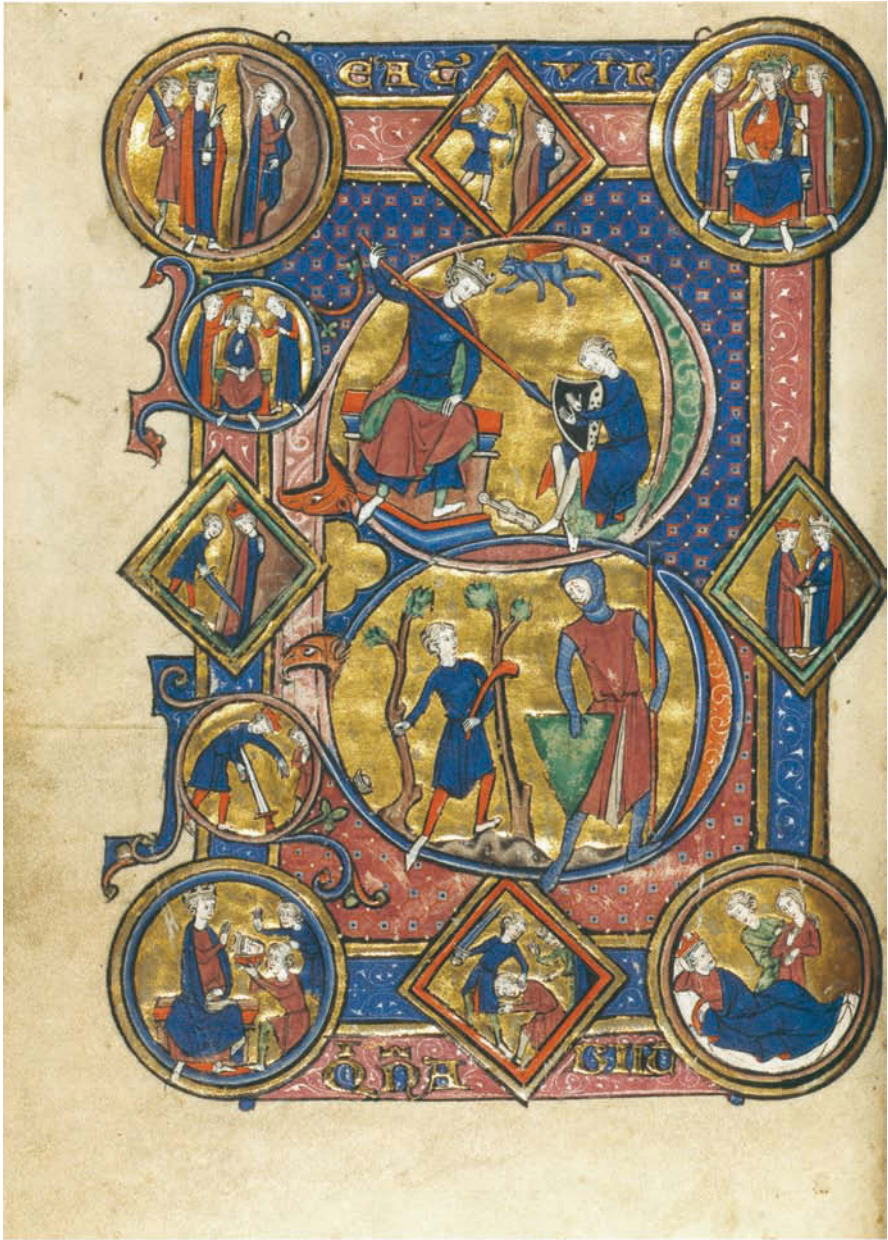 BEAT᷒ VIR
Q̄ N̄ A BIIT